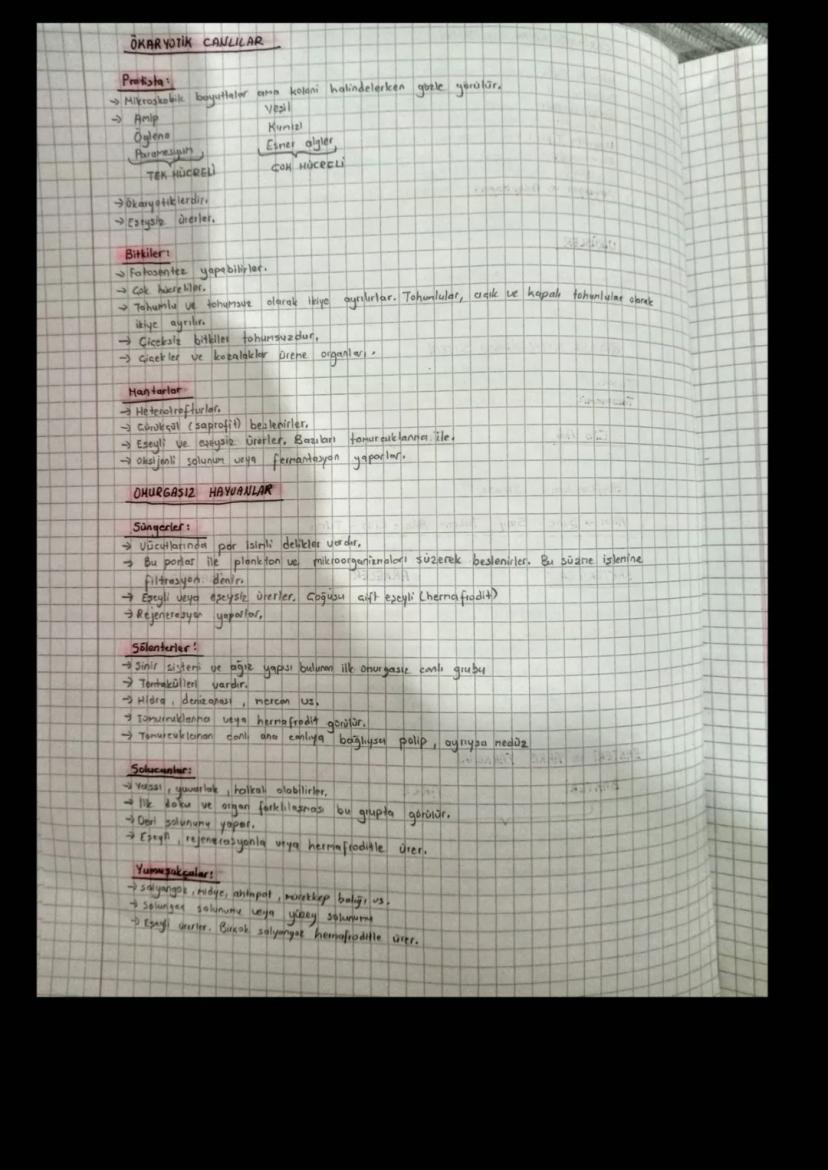 ÖKARYOTİK CANLILAR
Protista:
→ Mikroskobik boyuttalar ama koloni halindelerken gözle görülür.
→ Amip Yeşil
Öglena Kırmızı
Paramesyum Esmer algler
TEK HÜCRELİ ÇOK HÜCRELİ
→ Ökaryotiklerdir.
→ Eşeysiz ürerler.
Bitkiler:
→ Fotosentez yapabilirler.
→ Çok hücreliler.
→ Tohumlu ve tohumsuz olarak ikiye ayrılırlar. Tohumlular, açık ve kapalı tohumlular olarak
ikiye ayrılır.
→ Çiçeksiz bitkiler tohumsuzdur.
→ Çiçekler ve kozalaklar üreme organları.
Mantarlar
→ Heterotrofturlar.
→ Çürükçül (saprofit) beslenirler.
→ Eşeyli ve eşeysiz ürerler. Bazıları tomurcuklanma ile.
→ Oksijenli solunum veya fermantasyon yaparlar.
OMURGASIZ HAYVANLAR
Süngerler:
→ Vücutlarında por isimli delikler vardır.
→ Bu porlar ile plankton ve mikroorganizmaları süzerek beslenirler. Bu süzme işlemine
filtrasyon denir.
→ Eşeyli veya eşeysiz ürerler. Çoğusu çift eşeyli (hermafrodit)
→ Rejenerasyon yaparlar.
Sölenterler:
→ Sinir sistemi ve ağız yapısı bulunan ilk omurgasız canlı grubu
→ Tentakülleri vardır.
→ Hidra, denizanası, mercan vs.
→ Tomurcuklanma veya hermafrodit görülür.
→ Tomurcuklanan canlı ana canlıya bağlıysa polip, ayrıysa medüz
Solucanlar:
→ Yassı, yuvarlak, halkalı olabilirler.
→ İlk doku ve organ farklılaşması bu grupta görülür.
→ Deri solunumu yapar.
→ Eşeyli, rejenerasyonla veya hermafroditle ürer.
Yumuşakçalar:
→ Salyangoz, midye, ahtapot, mürekkep balığı vs.
→ Solungaç solunumu veya yüzey solunumu
→ Eşeyli ürerler. Birkaç salyangoz hermafroditle ürer.